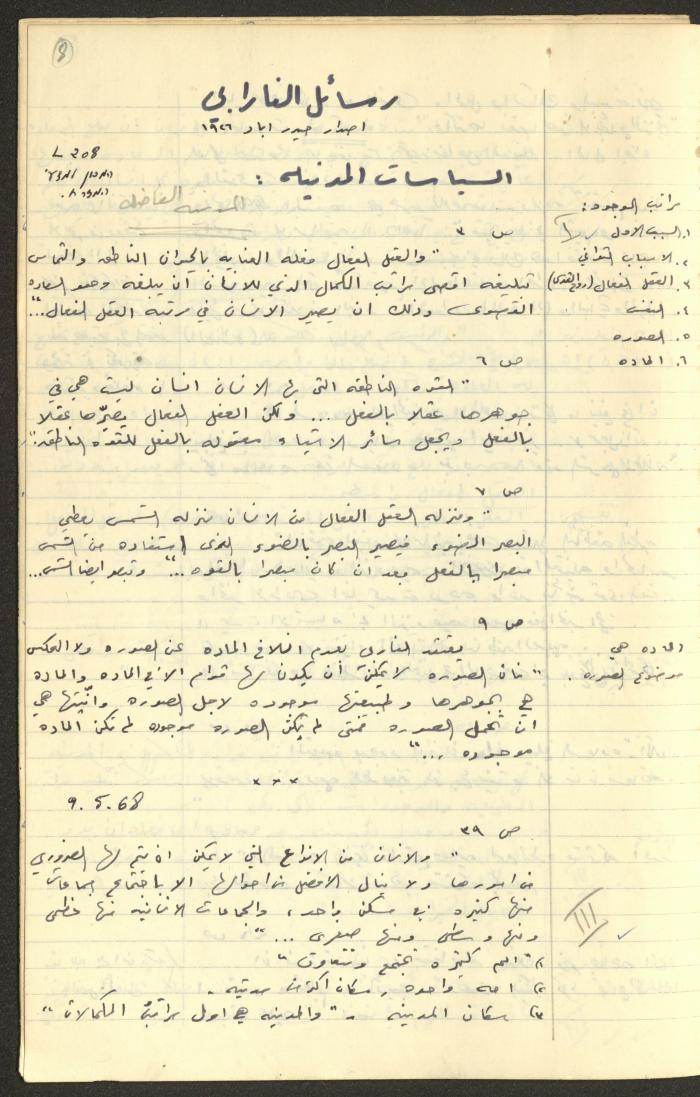 3
رسائل الفارابي
اصدار حيدر اباد ١٩٢٦
L 308
السياسات المدنيه :
المدينه الفاضله
مراتب الوجود :
١. السبب الاول
٢. الاسباب الثواني
٣. العقل الفعال (روح القدس)
٤. النفس
٥. الصوره
٦. الماده
ص ٣
"والعقل الفعال فعله العنايه بالحيوان الناطق والتماس
تبليغه اقصى مراتب الكمال الذي للانسان أن يبلغه وهو السعاده
القصوى وذلك ان يصير الانسان في مرتبة العقل الفعال..."
ص ٦
"القوه الناطقه التي بها الانسان انسان ليست هي في
جوهرها عقلا بالفعل ... ولكن العقل الفعال يصيّرها عقلا
بالفعل ويجعل سائر الاشياء معقوله بالفعل للقوه الناطقه."
ص ٧
"ومنزله العقل الفعال من الانسان منزله الشمس يعطي
البصر الضوء فيصير البصر بالضوء الذى استفاده من الشمس
مبصرا بالفعل بعد ان كان مبصرا بالقوه ..." وتبصر ايضا الشمس...
ص ٩
يعتقد الفارابي بعدم انسلاخ الماده عن الصوره ولا العكس
الماده هي
موضوع الصوره .
"فان الصوره لا يمكن أن يكون لها قوام الا في الماده والماده
هي بجوهرها وطبيعتها موجوده لاجل الصوره وانّيتها هي
ان تحمل الصوره فمتى لم تكن الصوره موجوده لم تكن الماده
موجوده ..."
* * *
9. 5. 68
ص ٣٩
"والانسان من الانواع التي لا يمكن ان يتم لها الضروري
من امورها ولا ينال الافضل من احوالها الا باجتماع جماعات
منها كثيره في مسكن واحد، والجماعات الانسانيه منها عظمى
ومنها وسطى ومنها صغرى ..."
III ✓
١) "امم كثيره تجتمع وتتعاون"
٢) امه واحده ، سكان اكثر من مدينه .
٣) سكان المدينه - "والمدينه هي اول مراتب الكمالات"